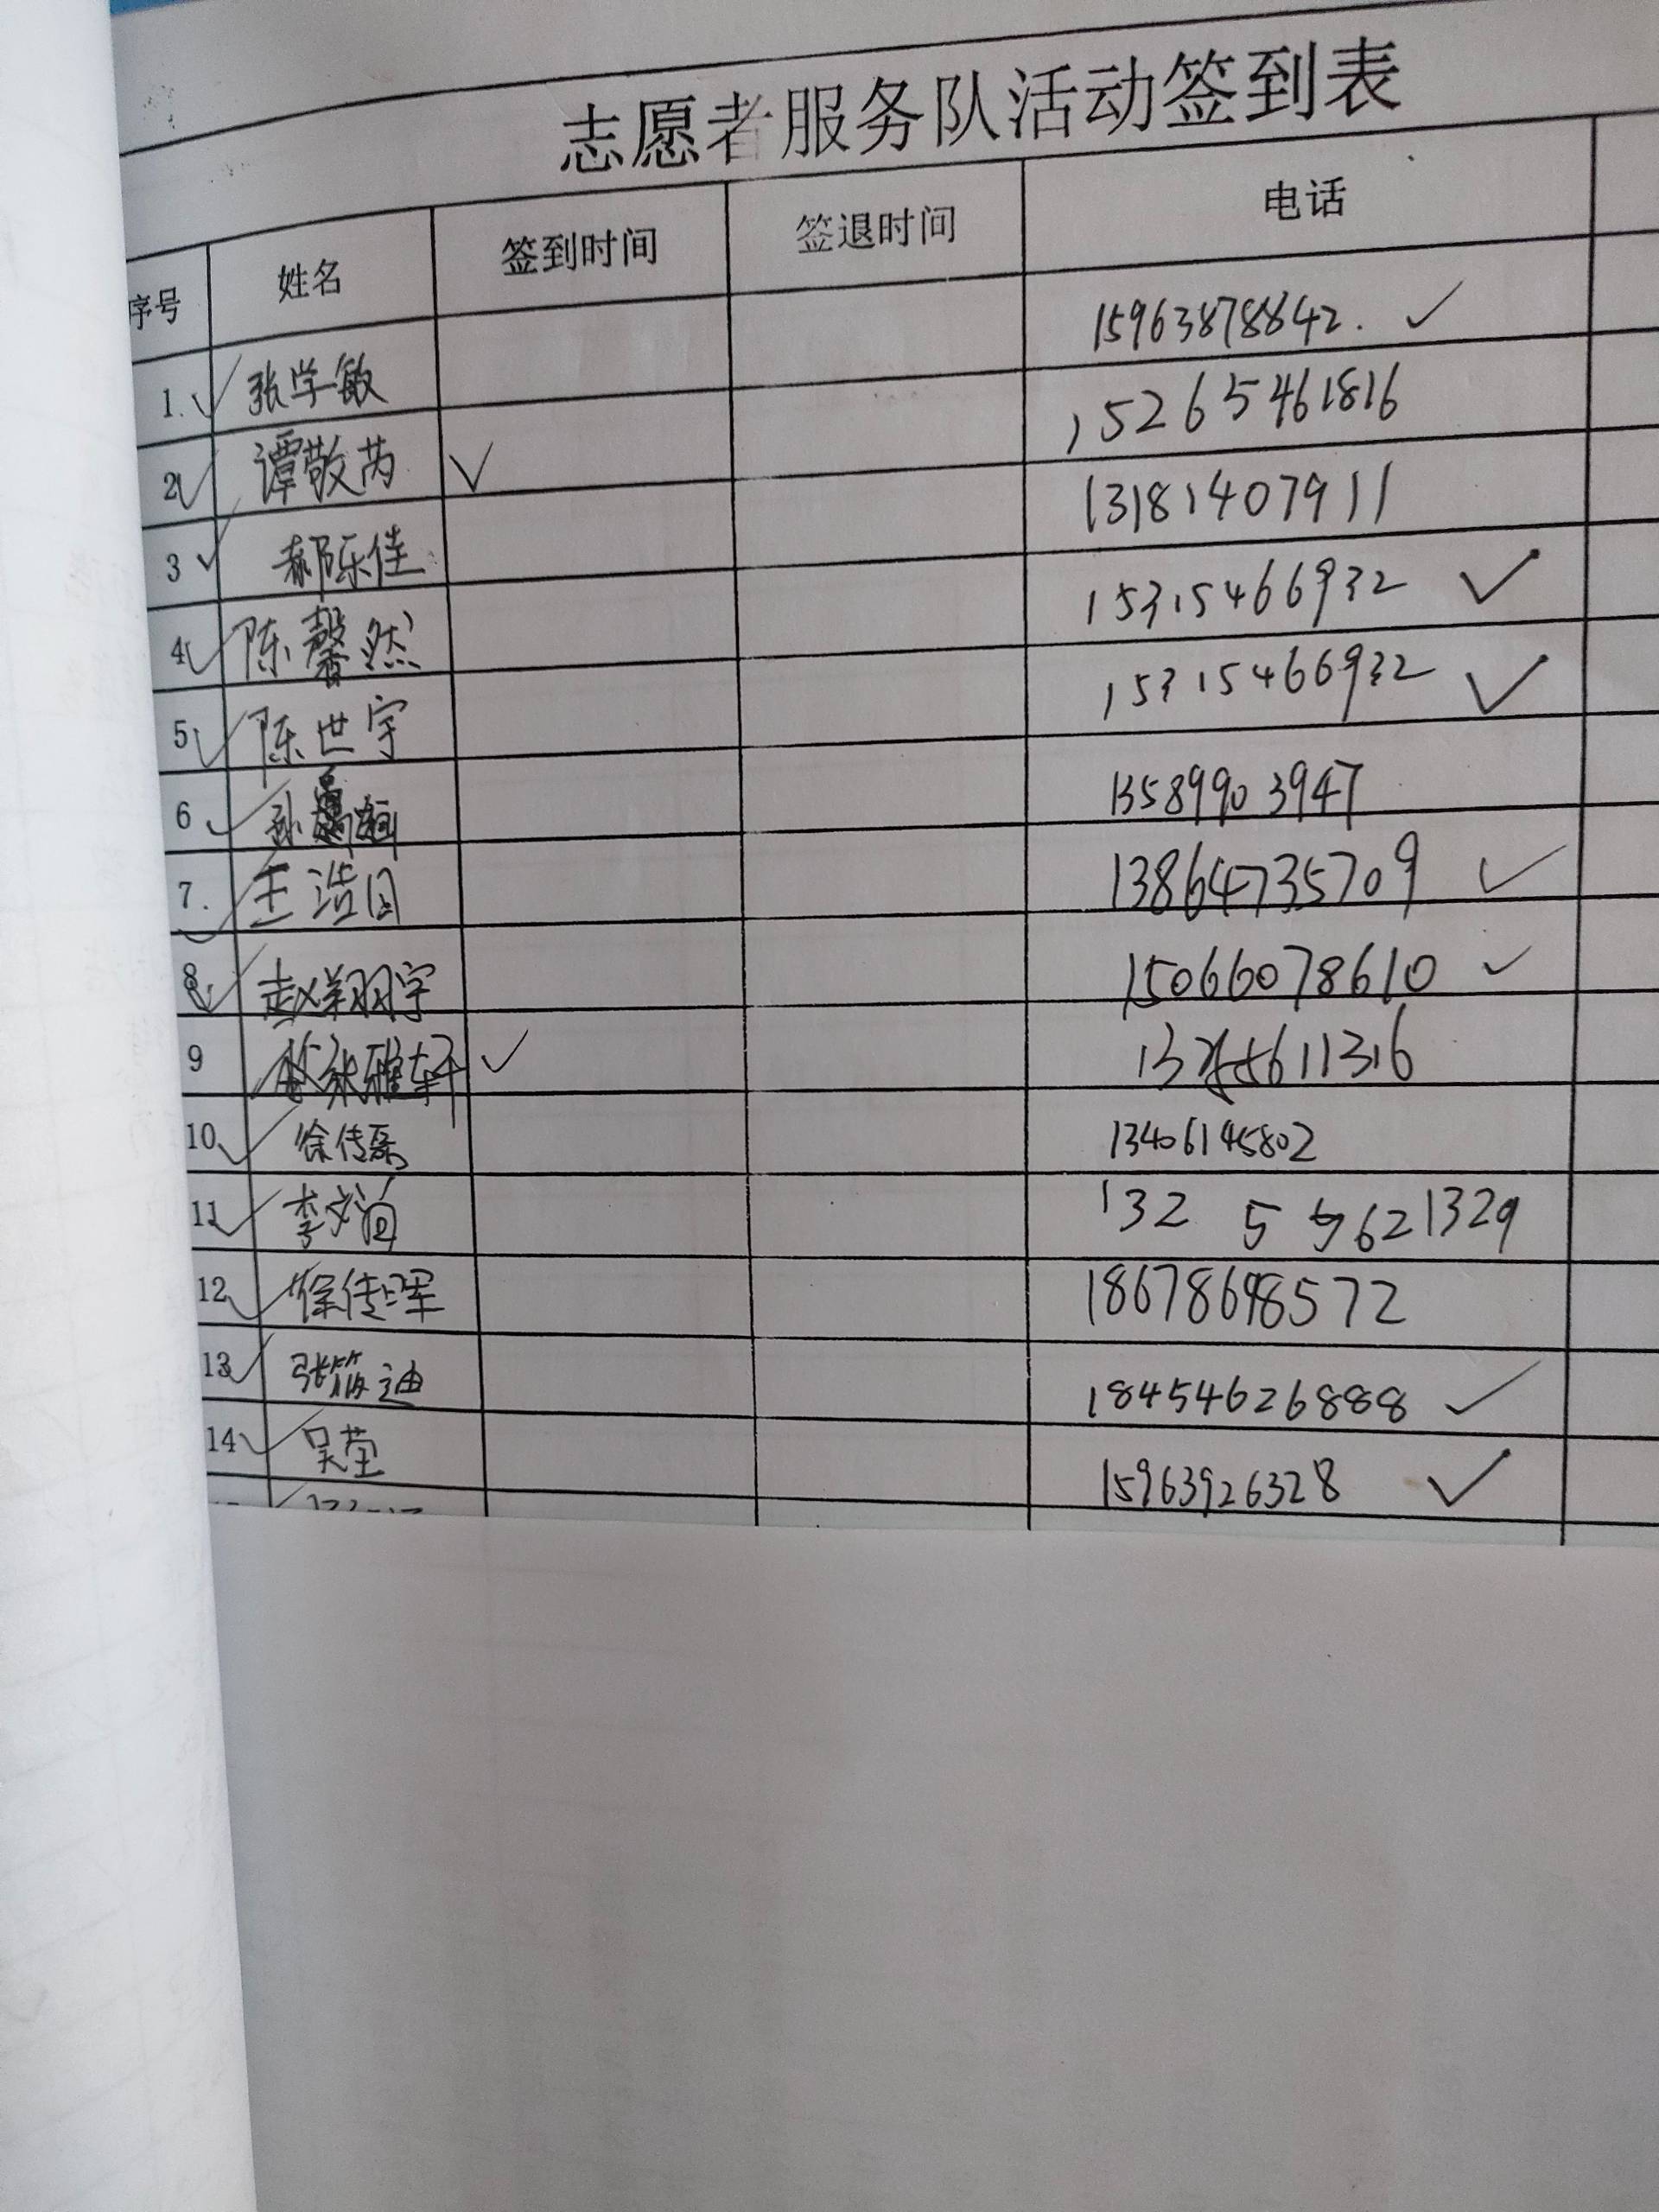 志愿者服务队活动签到表
序号 姓名 签到时间 签退时间 电话
1. ✓ 张学敏 15963878842. ✓
2 ✓ 谭敬芮 ✓ 15265461816
3 ✓ 郝乐佳 13181407911
4 ✓ 陈馨然 15315466932 ✓
5 ✓ 陈世宇 15315466932 ✓
6 ✓ 孙 13589903947
7. ✓ 王浩 13864735709 ✓
8 ✓ 赵翔宇 15066078610 ✓
9 雅轩 ✓
10 ✓ 徐传 13406145802
11 ✓ 李文 13255621329
12 ✓ 徐传 18678698572
13 ✓ 张筱迪 18454626888 ✓
14 ✓ 吴莹 15963926328 ✓